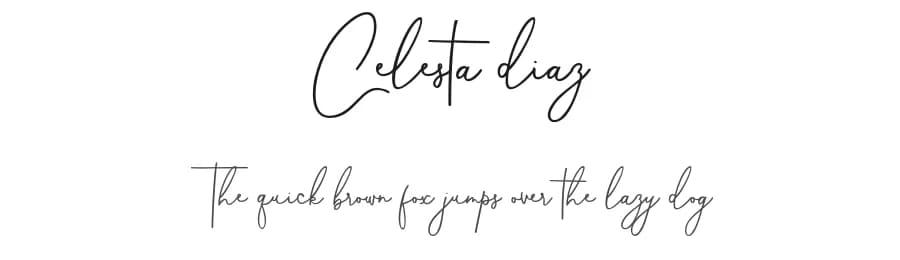 Celesta diaz
The quick brown fox jumps over the lazy dog